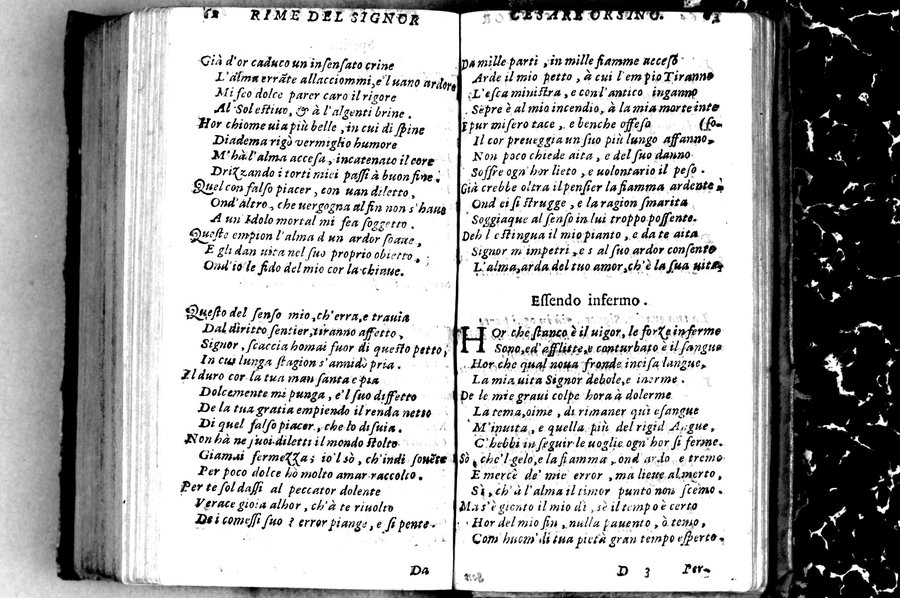 62 RIME DEL SIGNOR
Già d'or caduco un insensato crine
L'alma errãte allacciommi, e'l uano ardore
Mi feo dolce parer caro il rigore
Al Sol estiuo, & à l'algenti brine.
Hor chiome uia più belle, in cui di spine
Diadema rigò vermiglio humore
M'hà l'alma accesa, incatenato il core
Drizzando i torti miei passi à buon fine.
Quel con falso piacer, con uan diletto,
Ond'altro, che vergogna al fin non s'haue
A un Idolo mortal mi fea soggetto.
Queste empion l'alma d un ardor soaue,
E gli dan uita nel suo proprio obietto,
Ond'io le fido del mio cor la chiaue.
Questo del senso mio, ch'erra, e trauia
Dal diritto sentier, tiranno affetto,
Signor, scaccia homai fuor di questo petto,
In cui lunga stagion s'annidò pria.
Il duro cor la tua man santa e pia
Dolcemente mi punga, e'l suo diffetto
De la tua gratia empiendo il renda netto
Di quel falso piacer, che lo disuia.
Non hà ne suoi diletti il mondo stolto
Giamai fermezza; io'l sò, ch'indi souẽte
Per poco dolce hò molto amar raccolto.
Per te sol dassi al peccator dolente
Verace gioia alhor, ch'à te riuolto
De i comessi suo i error piange, e si pente.
Da
CESARE ORSINO. 63
Da mille parti, in mille fiamme acceso
Arde il mio petto, à cui l'empio Tiranno
L'esca ministra, e con l'antico inganno
Sẽpre è al mio incendio, à la mia morte inte
E pur misero tace, e benche offeso (so.
Il cor preueggia un suo più lungo affanno,
Non poco chiede aita, e del suo danno
Soffre ogn'hor lieto, e uolontario il peso.
Già crebbe oltra il pensier la fiamma ardente;
Ond ei si strugge, e la ragion smarita
Soggiaque al senso in lui troppo possente.
Deh l estingua il mio pianto, e da te aita
Signor m impetri, e s al suo ardor consente
L'alma, arda del tuo amor, ch'è la sua uita.
Essendo infermo.
HOr che stanco è il uigor, le forze inferme
Sono, ed'afflitte, e conturbato è il sangue
Hor che qual noua fronde incisa langue,
La mia uita Signor debole, e inerme.
De le mie graui colpe hora à dolerme
La tema, oime, di rimaner quì esangue
M'inuita, e quella più del rigid Angue,
C'hebbi in seguir le uoglie ogn'hor sì ferme.
Sò, che'l gelo, e la fiamma, ond ardo e tremo
E mercè de' mie error, ma lieue al merto,
Sì, ch'à l'alma il timor punto non scemo.
Mas'è gionto il mio dì, sè il tempo è certo
Hor del mio fin, nulla pauento, ò temo,
Com huom' di tua pietà gran tempo esperto.
D 3 Per-